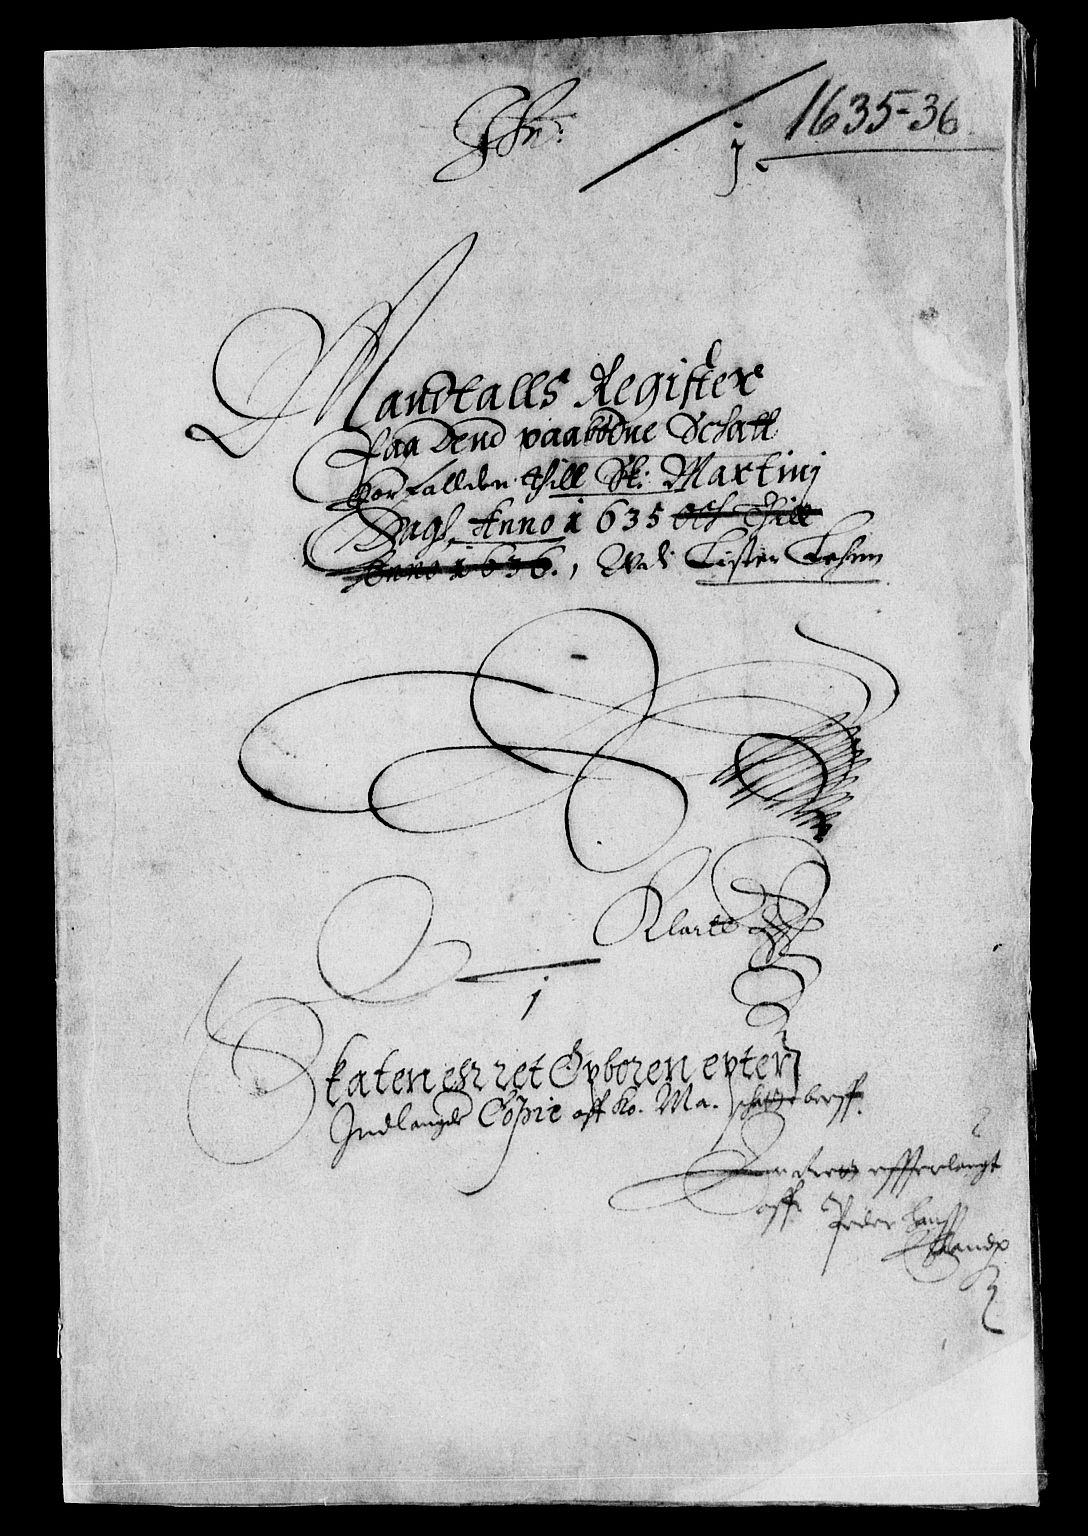 1635-36
j
Mandtalls Register
Paa Dend paabödne Schatt
Forfallden thill St: Martinj
Dagh, Anno 1635 Och Thill
Anno 1636., Vdi Lister Lehnn
Klartt
j
Skaten er ret Opboren epter
Indlangde Copie aff Ko. Ma. schatte breff.
efferlangt
aff Peder